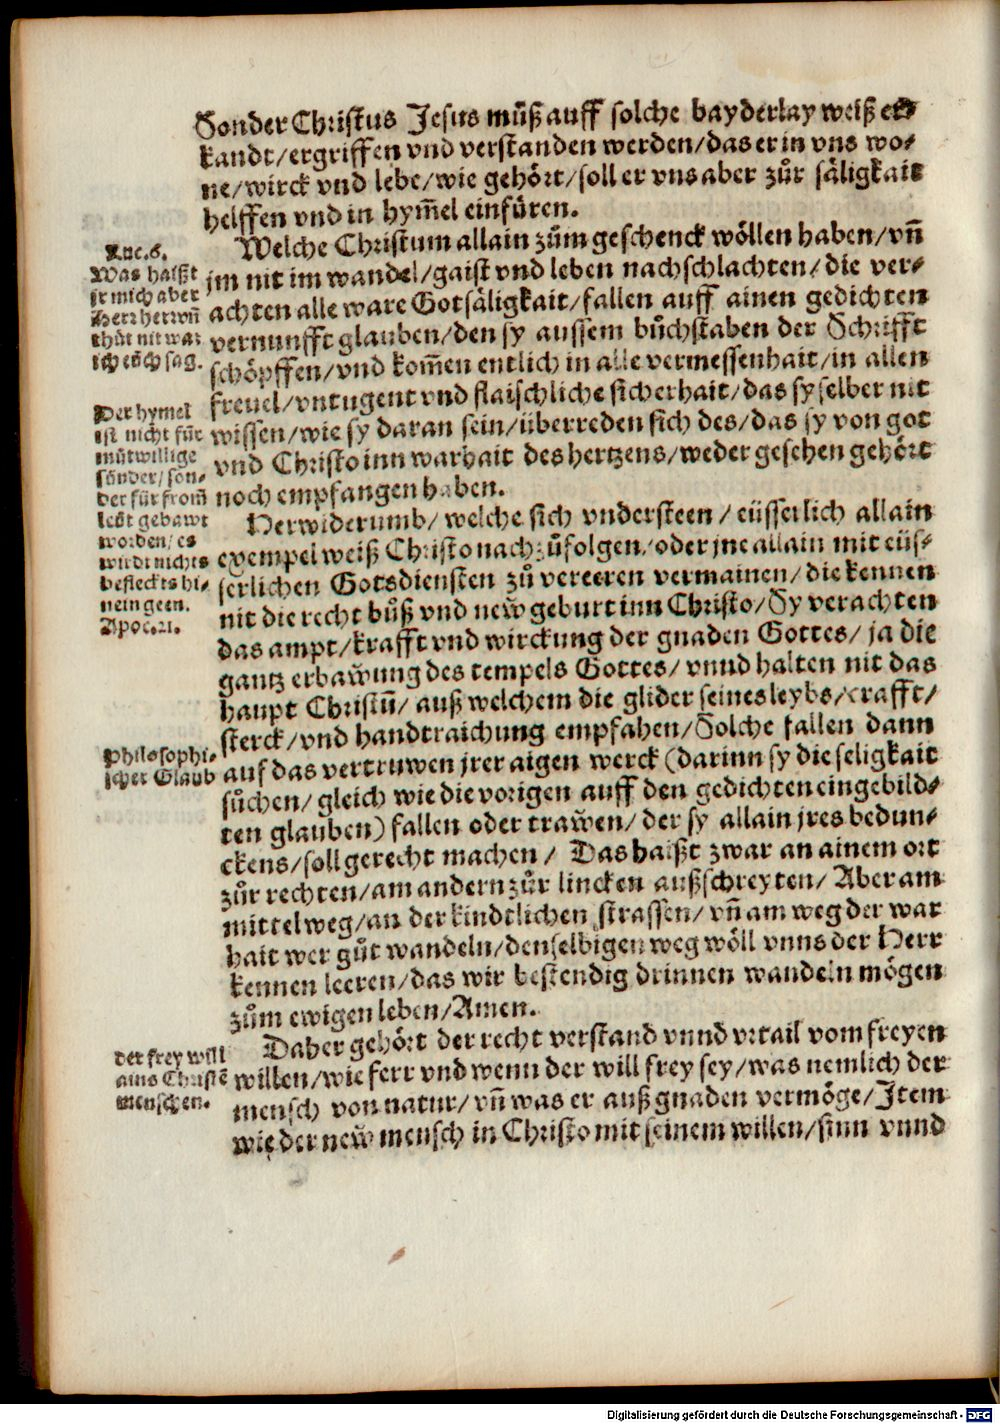 Sonder Christus Jesus můß auff solche bayderlay weiß er=
kandt/ergriffen vnd verstanden werden/das er in vns wo=
ne/wirck vnd lebe/wie gehört/soll er vns aber zůr säligkait
helffen vnd in hym̃el einfüren.
Welche Christum allain zům geschenck wöllen haben/vn̄
jm nit im wandel/gaist vnd leben nachschlachten/die ver=
achten alle ware Gotsäligkait/fallen auff ainen gedichten
vernunfft glauben/den sy aussem bůchstaben der Schrifft
schöpffen/vnd kom̃en entlich in alle vermessenhait/in allen
freuel/vntugent vnd flaischliche sicherhait/das sy selber nit
wissen/wie sy daran sein/überreden sich des/das sy von got
vnd Christo inn warhait des hertzens/weder gesehen gehört
noch empfangen haben.
Herwiderumb/welche sich vndersteen/eüsserlich allain
exempel weiß Christo nachzůfolgen/oder jne allain mit eüs=
serlichen Gotsdiensten zů vereeren vermainen/die kennen
nit die recht bůß vnd new̌ geburt inn Christo/Sy verachten
das ampt/krafft vnd wirckung der gnaden Gottes/ja die
gantz erbaw̌ung des tempels Gottes/vnnd halten nit das
haupt Christū/auß welchem die glider seines leybs/krafft/
sterck/vnd handtraichung empfahen/Solche fallen dann
auf das vertruwen jrer aigen werck (darinn sy die seligkait
sůchen/gleich wie die vorigen auff den gedichten eingebild=
ten glauben) fallen oder traw̌en/der sy allain jres bedun=
ckens/soll gerecht machen/ Das haißt zwar an ainem ort
zůr rechten/am andern zůr lincken außschreyten/Aber am
mittelweg/an der kindtlichen strassen/vn̄ am weg der war
hait wer gůt wandeln/denselbigen weg wöll vnns der Herr
kennen leeren/das wir bestendig drinnen wandeln mögen
zům ewigen leben/Amen.
Daher gehört der recht verstand vnnd vrtail vom freyen
willen/wie ferr vnd wenn der will frey sey/was nemlich der
mensch von natur/vn̄ was er auß gnaden vermöge/Item
wie der new̌ mensch in Christo mit seinem willen/sinn vnnd
Luc.6.
Was haißt
jr mich aber
Herr herr vn̄
thůt nit was
ich eüch sag.
Der hymel
ist nicht für
můtwillige
sünder/son=
der für from̃
leüt gebawt
worden/es
wirdt nichts
beflecks hi=
nein geen.
Apoc.21.
Philosophi=
scher Glaub
der frey will
ains Christē
menschen.
Digitalisierung gefördert durch die Deutsche Forschungsgemeinschaft - DFG